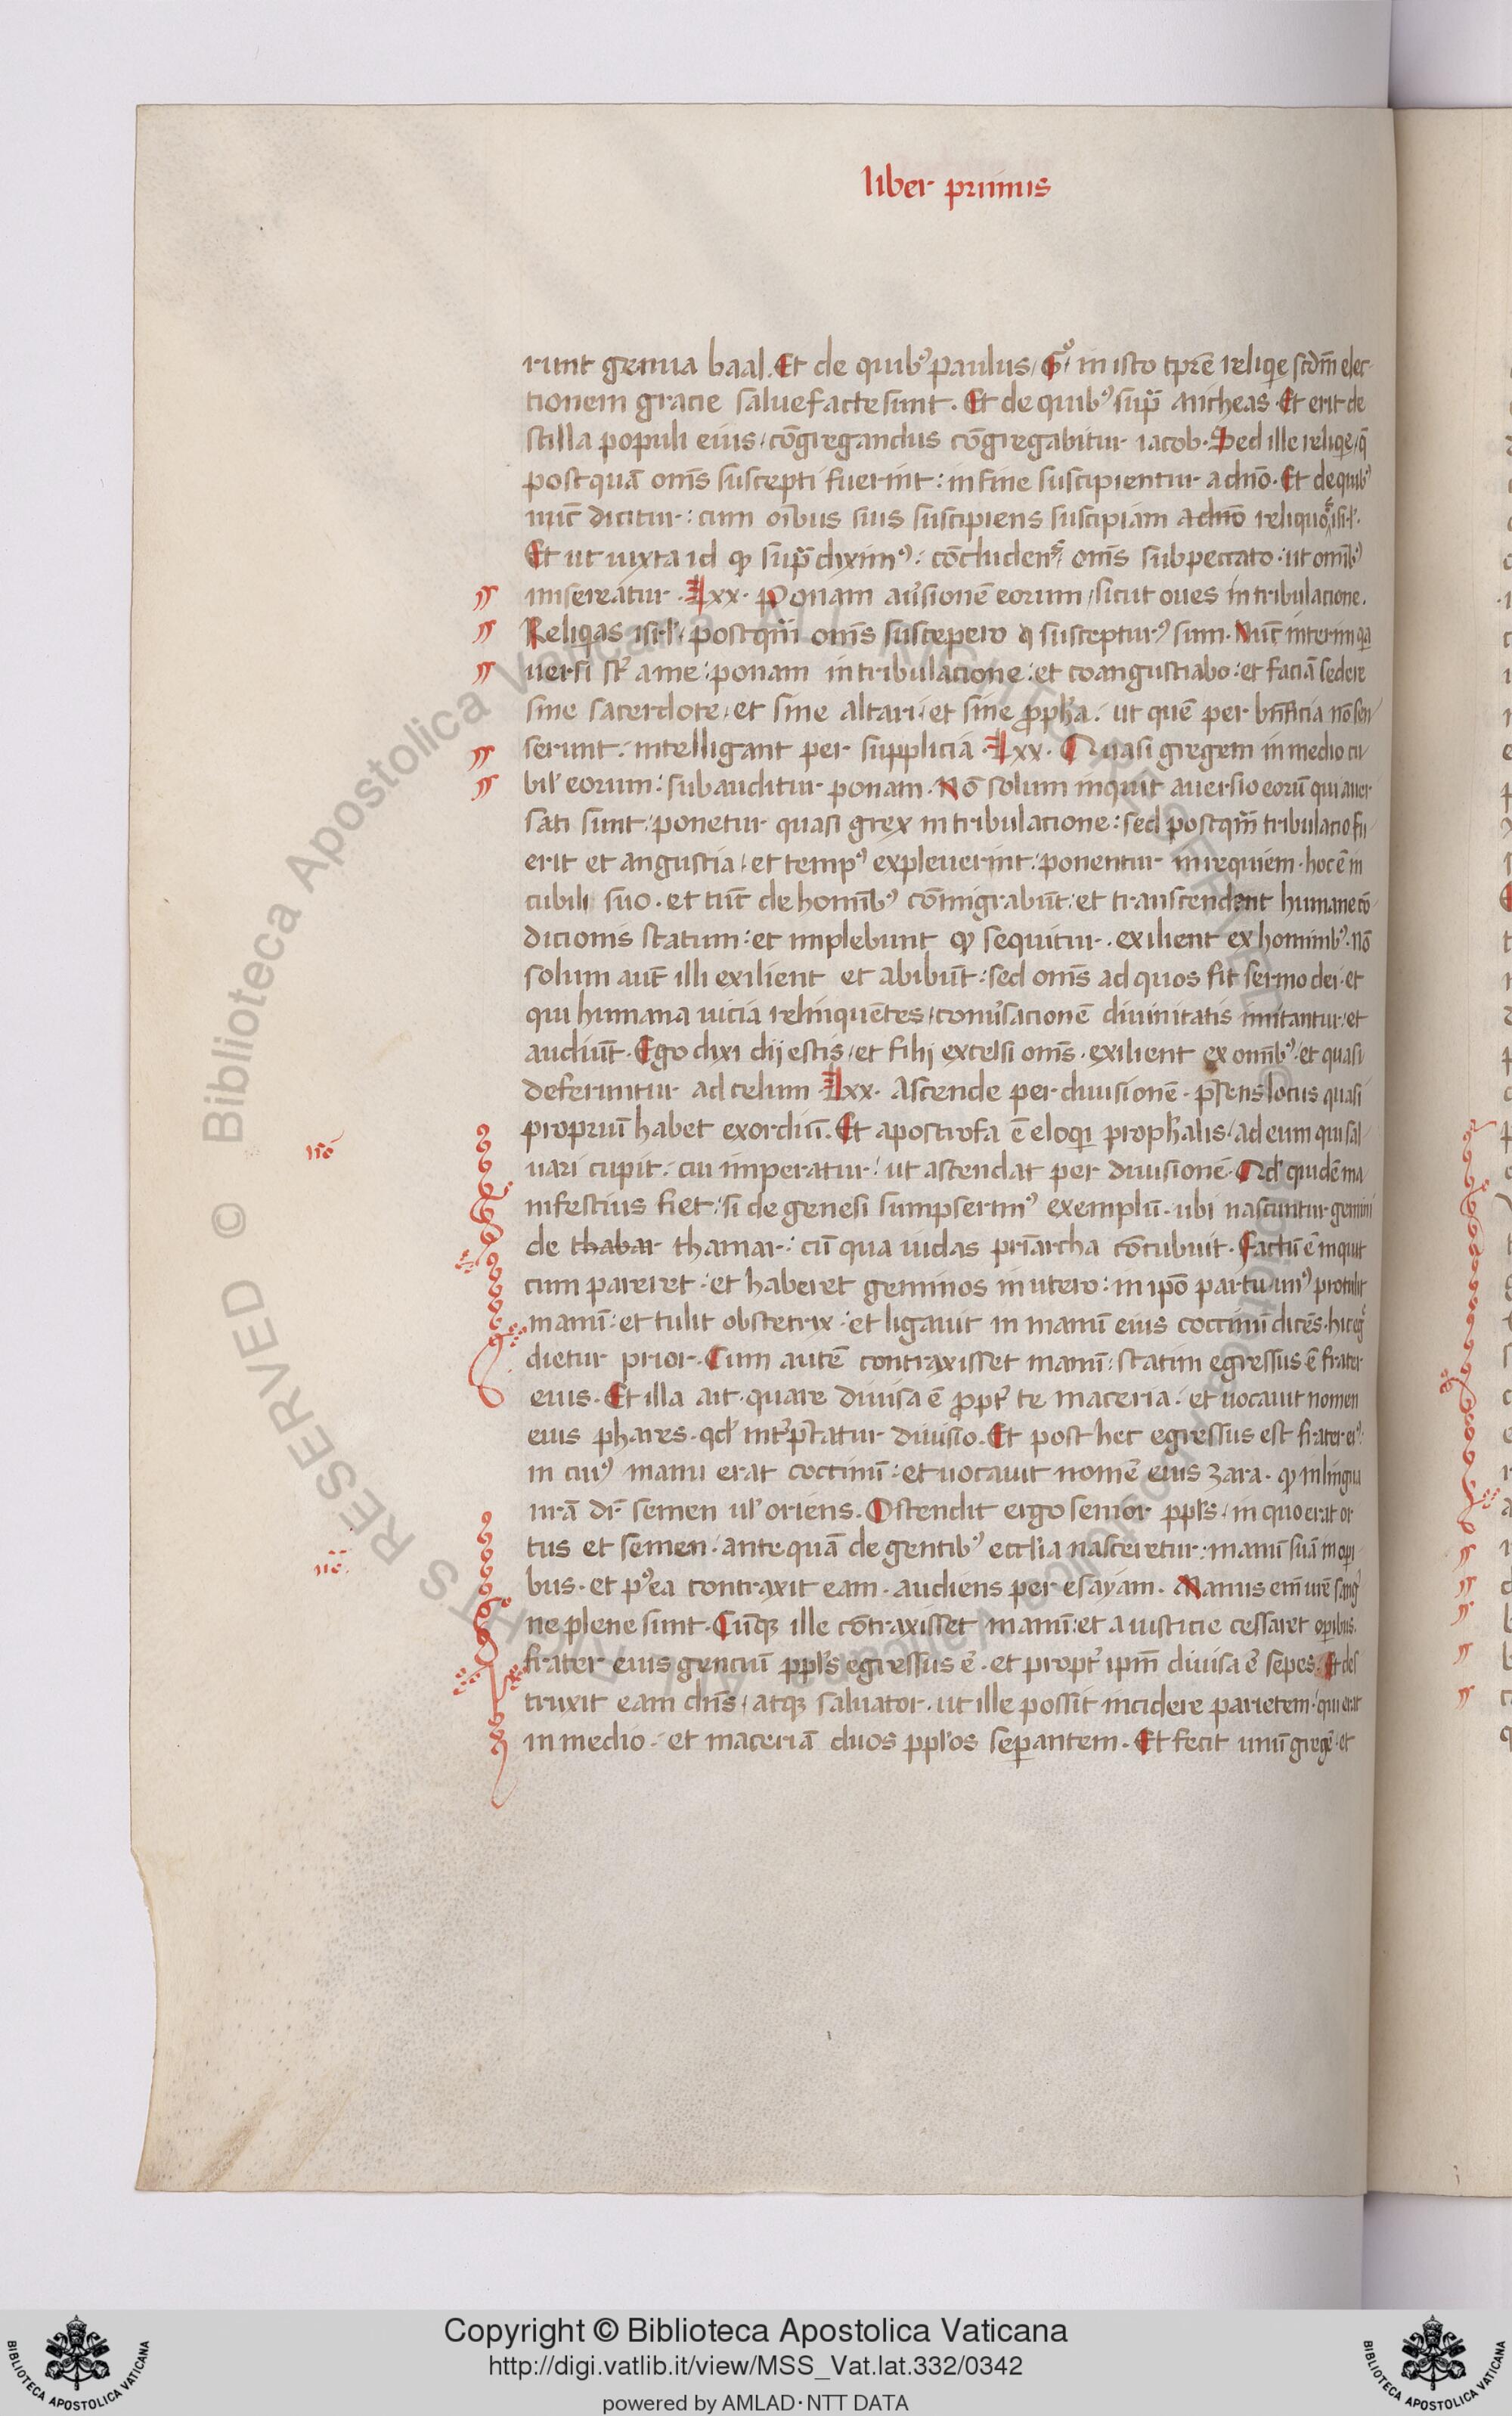 liber primus
runt genua baal. Et de quibꝰ paulus, Gͦ in isto tpr̄e reliq̄e scd̄m elec-
tionem gracie salue facte sunt. Et de quibꝰ supͣ micheas. Et erit de
stilla populi eius, cōgregandus cōgregabitur iacob. Sed ille reliq̄e, q̄
postquā om̄s suscepti fuerint: in fine suscipientur a dn̄o. Et de quibꝰ
nūc dicitur: cum oībus suis suscipiens suscipiam a dn̄o reliquoꝝ isrl̄.
Et ut iuxta id qᷣ supͣ diximꝰ: cōcludens om̄s sub peccato. ut omībꝰ
misereatur. Lxx. Ponam auͥsionē eorum, sicut oues in tribulacione.
Reliq̄as isrl̄, postqͣm om̄s suscepero q̄ suscepturꝰ sum. Nūc interim qͣ
uersi st̄ a me: ponam in tribulacione: et coangustiabo: et faciā sedere
sine sacerdote, et sine altari, et sine ꝓpħa. ut quē per bn̄ficia nō sen-
serunt. intelligant per supplicia. Lxx. Quasi gregem in medio cu-
bil' eorum: subauditur ponam. Nō solum inquit auersio eorū qui auer
sati sunt, ponetur quasi grex in tribulacione: sed postqͣm tribulacio fu-
erit et angustia, et tempꝰ expleuerint, ponentur in requiem. hoc ē in
cubili suo. et tūc de homībꝰ cōmigrabūt, et transcendent humane cō-
dicionis statum: et implebunt qᷣ sequitur. exilient ex hominibꝰ. nō
solum aut̄ illi exilient et abibūt: sed om̄s ad quos fit sermo dei. et
qui humana uicia relinquētes, conuͥsacionē diuinitatis imitantur, et
audiūt. Ego dixi dij estis, et filij excelsi om̄s. exilient ex omībꝰ. et quasi
deferuntur ad celum. Lxx. Ascende per diuisionē. p̄sens locus quasi
propriū habet exordiū. Et apostrofa ē eloqi prophalis, ad eum qui sal-
uari cupit. cui imperatur: ut ascendat per diuisionē. Qd' quidē ma-
nifestius fiet, si de genesi sumpserimꝰ exemplū. ubi nascuntur gemini
de thabar thamar: cū qua iudas pr̄iarcha cōcubuit. Factū ē inquit
cum pareret: et haberet geminos in utero: in ip̄o partu unꝰ protulit
manū: et tulit obstetrix: et ligauit in manū eius coccinū dicēs. hic egͬ
dietur prior. Cum autē contraxisset manū: statim egressus ē frater
eius. Et illa ait. quare diuisa ē ꝓpt' te maceria. et uocauit nomen
eius phares. qd' int'pͣtatur diuisio. Et post hec egressus est frater eiꝰ
in cuiꝰ manu erat coccinū: et uocauit nomē eius zara. qᷣ in lingua
nrā dr̄ semen ul' oriens. Ostendit ergo senior ppl's, in quo erat or
tus et semen. antequā de gentibꝰ eccl'ia nasceretur: manū suā in opi-
bus. et pꝰea contraxit eam. audiens per esayam. Manus em̄ ur̄e sangͥ
ne plene sunt. Cūqꝫ ille cōtraxisset manū: et a iusticie cessaret operibus.
frater eius gentiū ppl's egressus ē. et propt' ipm̄ diuisa ē sepes. Et des
truxit eam dn̄s, atqꝫ saluator. ut ille possit incidere parietem. qui erat
in medio. et maceriā duos ppl'os sepantem. Et fecit unū gregē. et
Copyright © Biblioteca Apostolica Vaticana
http://digi.vatlib.it/view/MSS_Vat.lat.332/0342
powered by AMLAD·NTT DATA
BIBLIOTECA APOSTOLICA VATICANA
BIBLIOTECA APOSTOLICA VATICANA